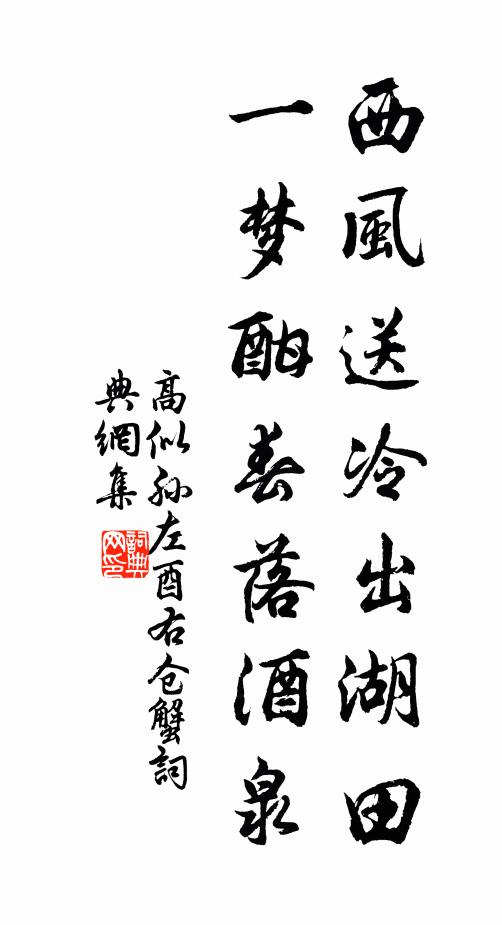 西風送冷出湖田
一梦酣春落酒泉
高似孙左酉右仓蟹詞
典網集
詞典网印